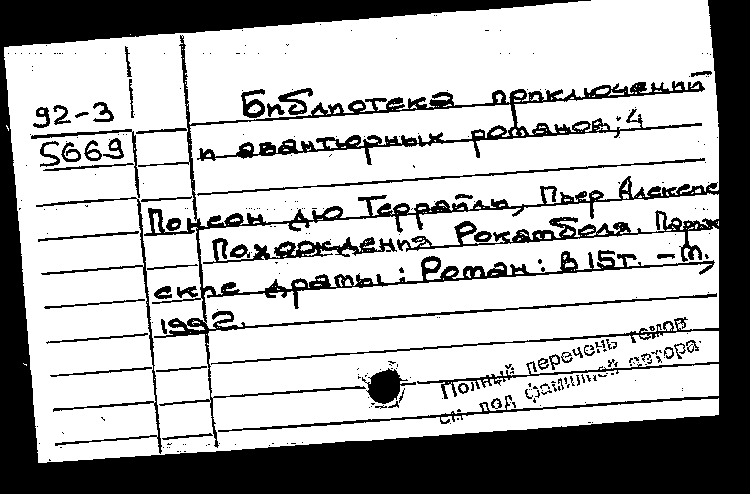 92-3
5669
Библиотека приключений
и авантюрных романов; 4
Понсон дю Террайль, Пьер Алексис
Похождения Рокамболя. Париж
ские драмы: Роман: В 15 т. – М.,
1992.
Полный перечень томов
см. под фамилией автора